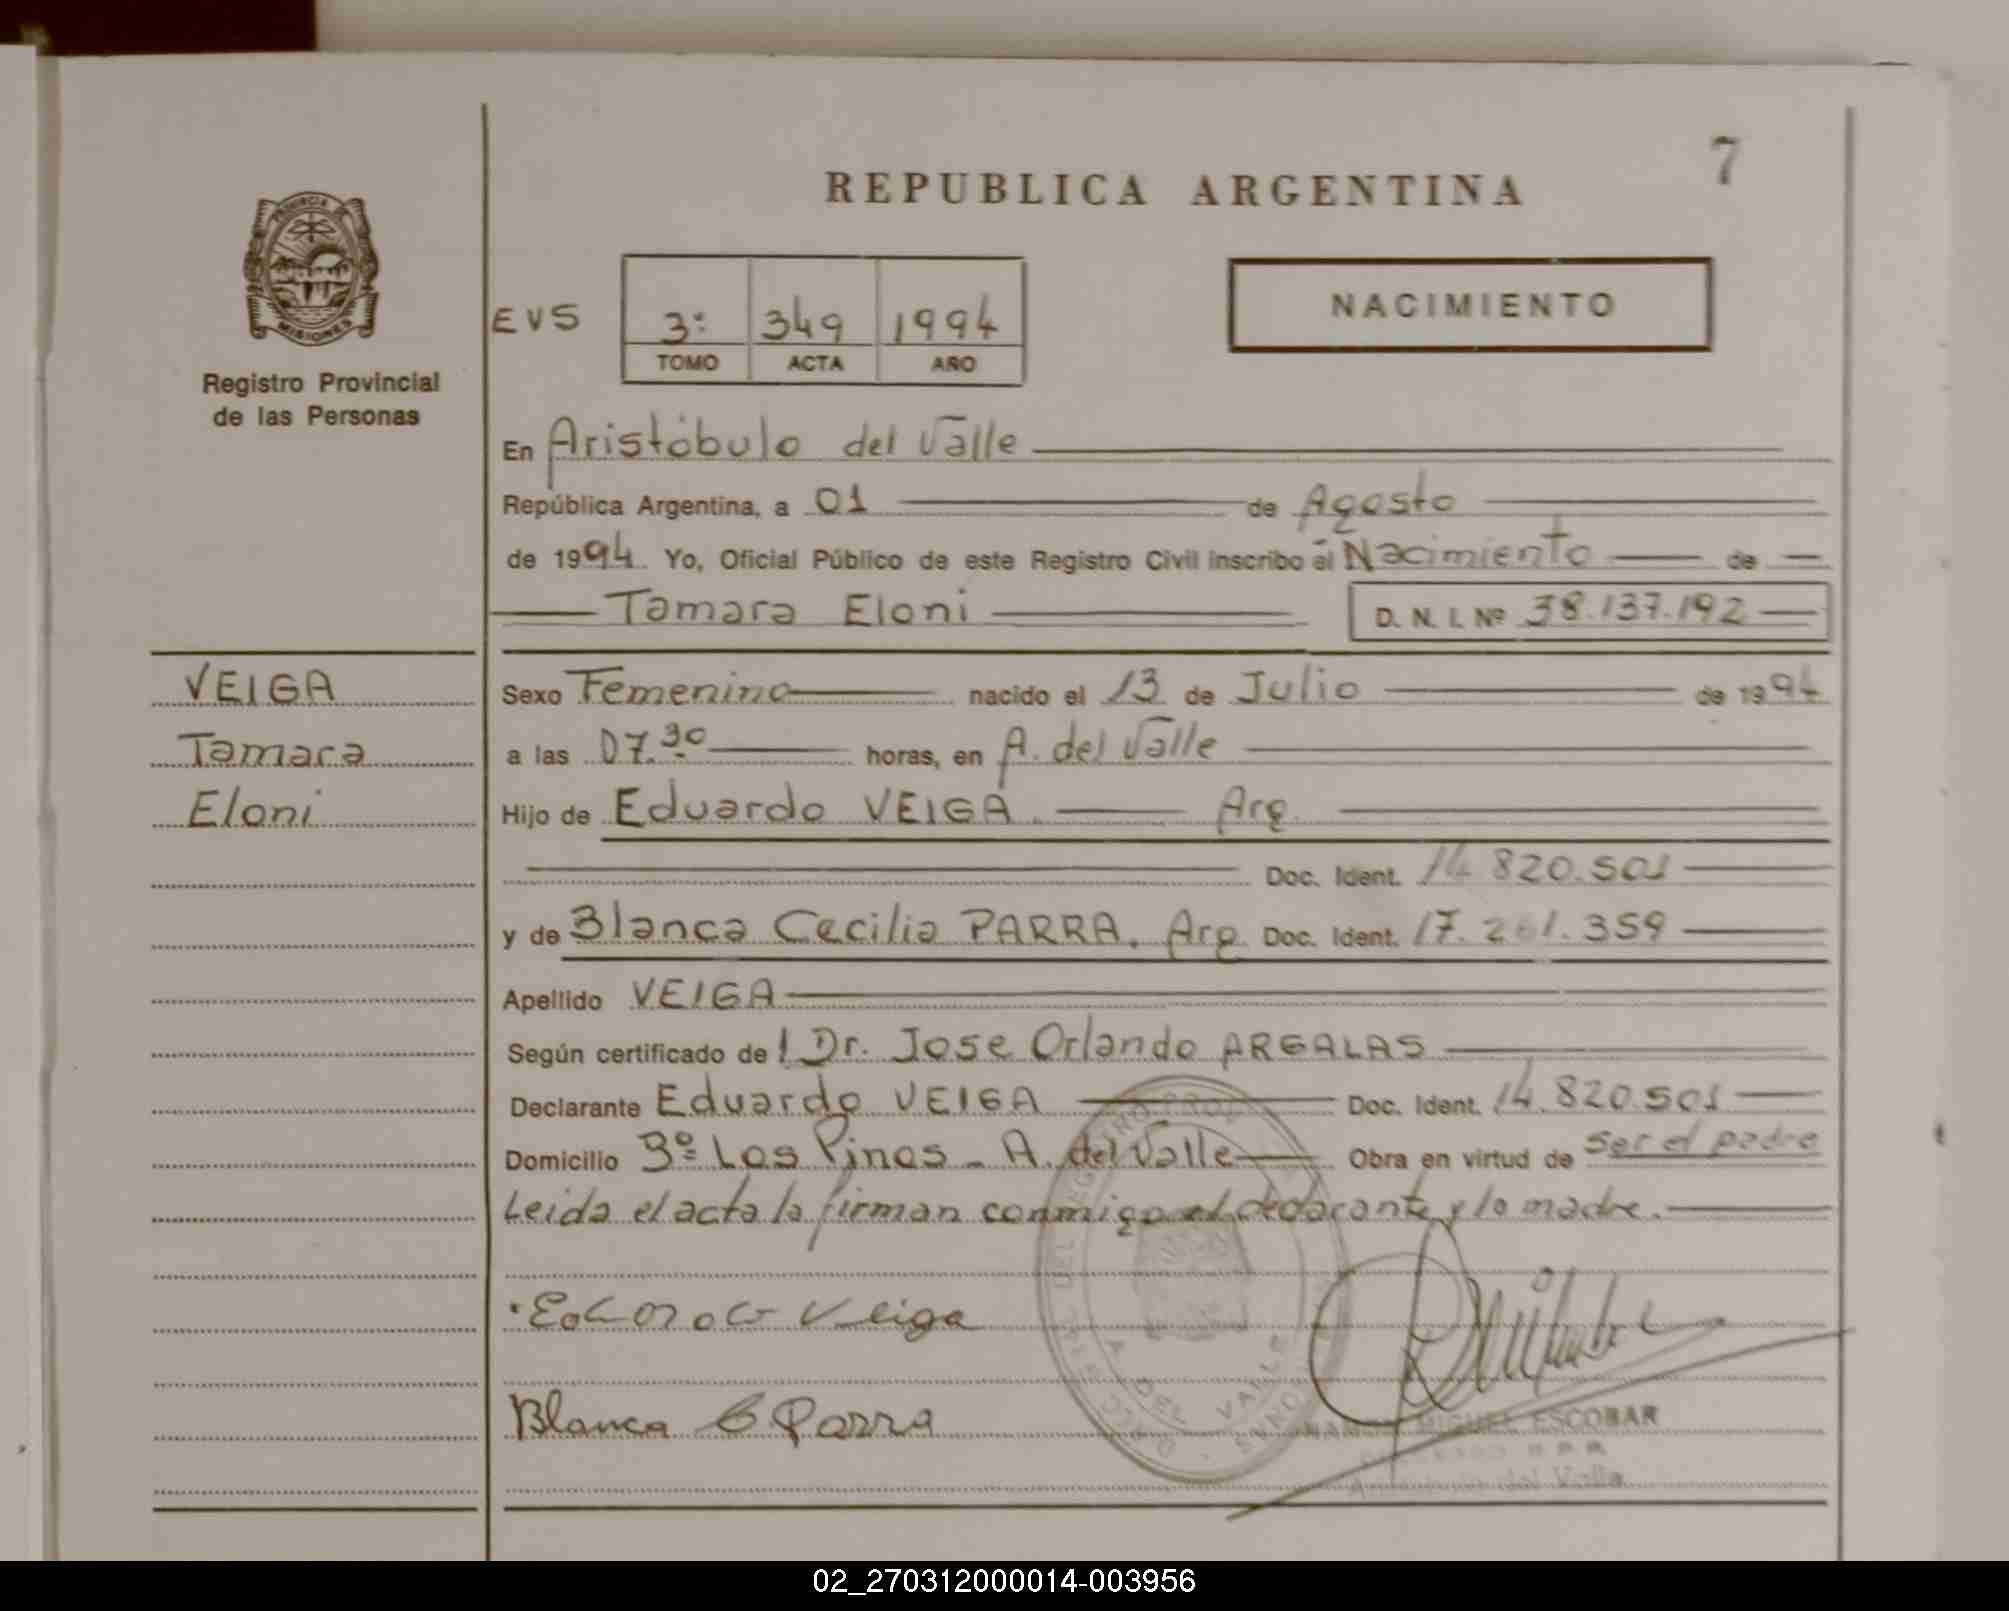 7
REPUBLICA ARGENTINA
PROVINCIA DE
MISIONES
Registro Provincial
de las Personas
EVS 3º 349 1994
TOMO ACTA AÑO
NACIMIENTO
En Aristóbulo del Valle
República Argentina, a 01 de Agosto
de 1994. Yo, Oficial Público de este Registro Civil inscribo el Nacimiento de
Tamara Eloni D. N. I. Nº 38.137.192
VEIGA
Tamara
Eloni
Sexo Femenino nacido el 13 de Julio de 1994
a las 07.30 horas, en A. del Valle
Hijo de Eduardo VEIGA. Arg.
Doc. Ident. 14.820.501
y de Blanca Cecilia PARRA. Arg. Doc. Ident. 17.261.359
Apellido VEIGA
Según certificado del Dr. Jose Orlando ARGALAS
Declarante Eduardo VEIGA Doc. Ident. 14.820.501
Domicilio Bº Los Pinos - A. del Valle Obra en virtud de ser el padre
Leida el acta la firman conmigo el declarante y la madre.
Eduardo Veiga
Blanca C Parra
A. DEL VALLE
MIGUEL ESCOBAR
del Valle
02_270312000014-003956